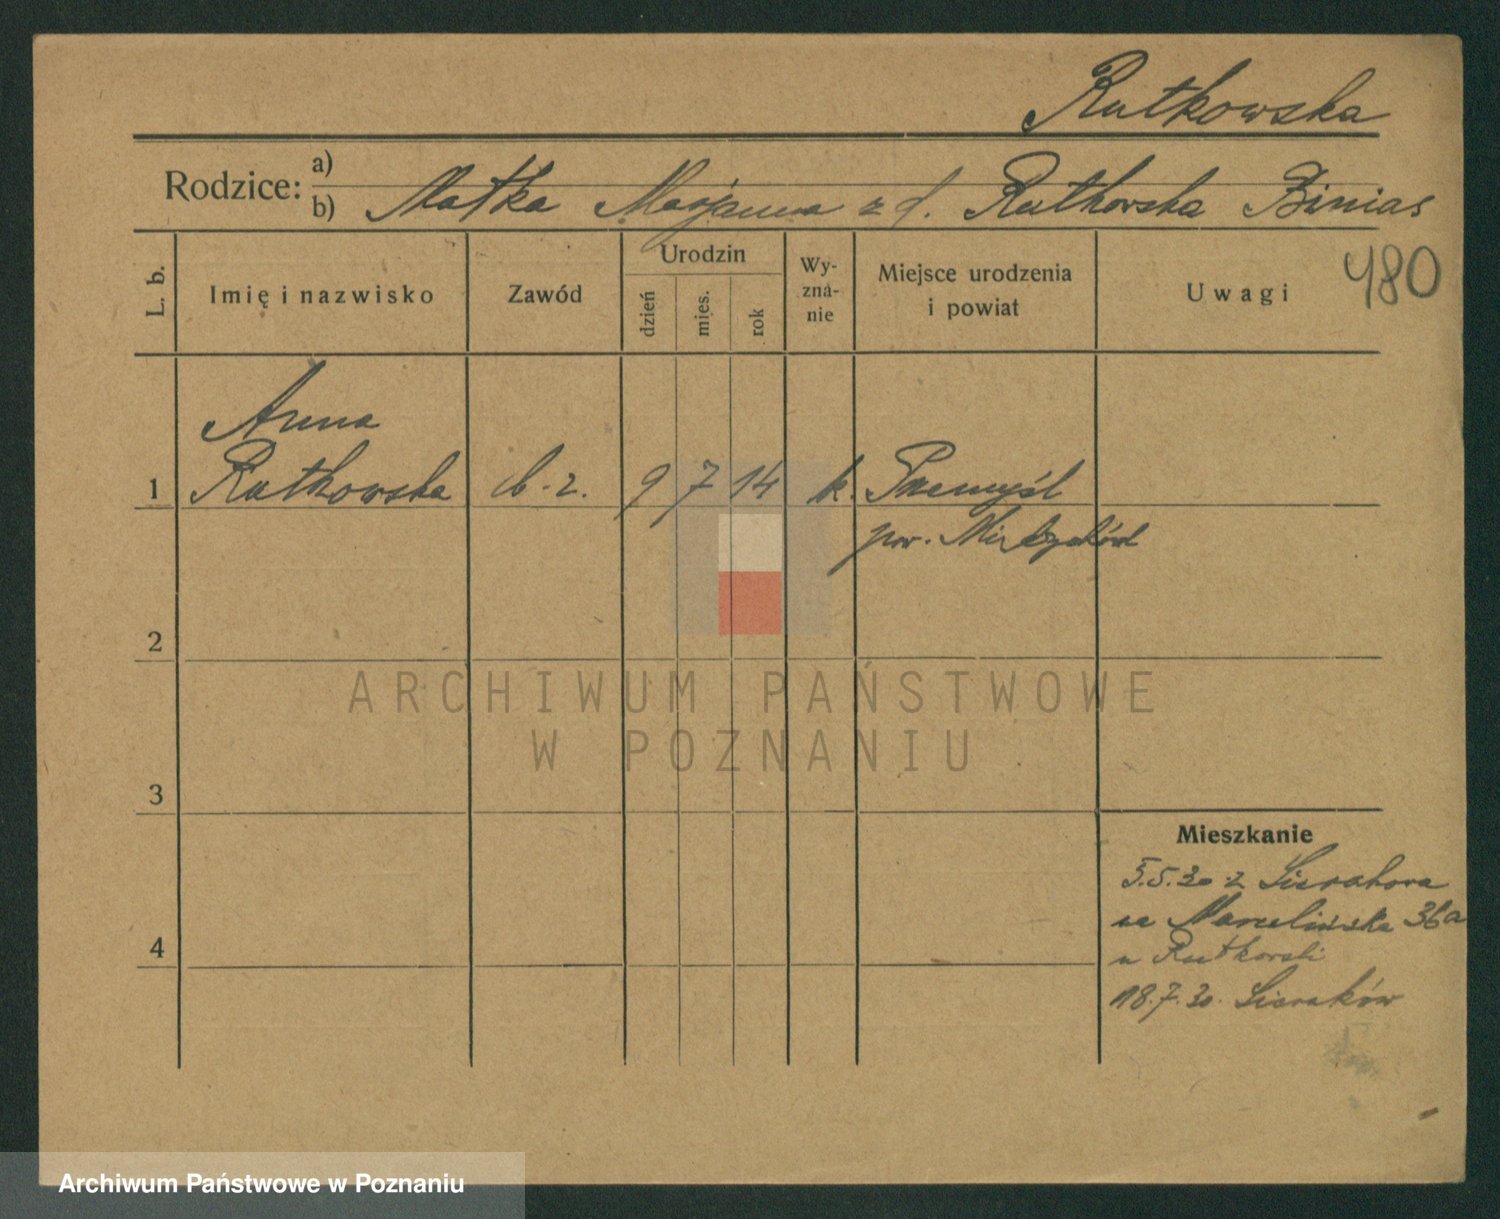 Rutkowska
Rodzice: a)
b) Matka Marjanna z d. Rutkowska Binias
L. b.
Imię i nazwisko
Zawód
Urodzin
dzień
mies.
rok
Wy-
zna-
nie
Miejsce urodzenia
i powiat
Uwagi
480
Anna
1 Rutkowska b. z. 9 7 14 k. Przemyśl
pow.
2
ARCHIWUM PAŃSTWOWE
W POZNANIU
3
Mieszkanie
5.5.30 z Sierakowa
Marcelińska 36a
u Rutkowski
4
18.7.30. Sieraków
Archiwum Państwowe w Poznaniu